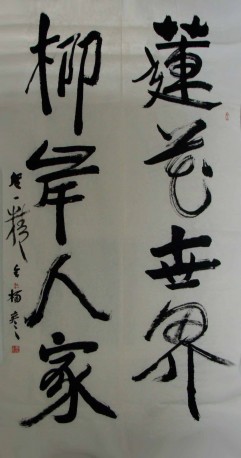 蓮花世界
柳岸人家